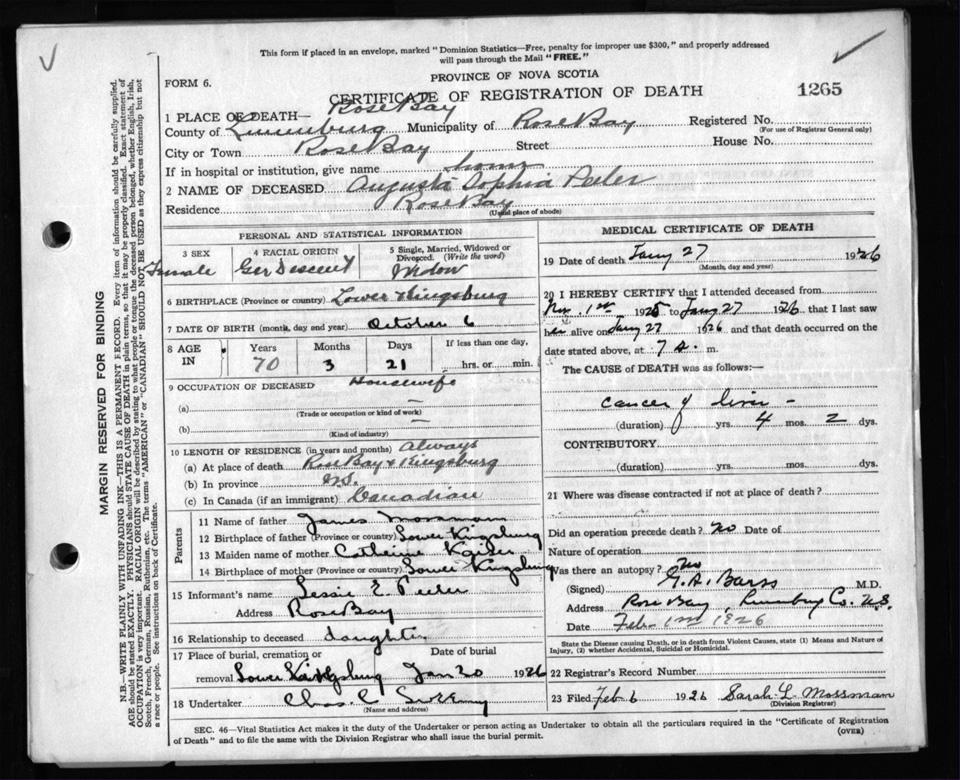 This form if placed in an envelope, marked "Dominion Statistics—Free, penalty for improper use $300," and properly addressed
will pass through the Mail "FREE."
PROVINCE OF NOVA SCOTIA
FORM 6.
CERTIFICATE OF REGISTRATION OF DEATH
1265
Rose Bay
1 PLACE OF DEATH—
County of Lunenburg Municipality of Rose Bay Registered No.
(For use of Registrar General only)
City or Town Rose Bay Street House No.
If in hospital or institution, give name home
2 NAME OF DECEASED Augusta Sophia Peeler
Residence Rose Bay
(Usual place of abode)
PERSONAL AND STATISTICAL INFORMATION
3 SEX Female
4 RACIAL ORIGIN Ger Descent
5 Single, Married, Widowed or Divorced. (Write the word) Widow
6 BIRTHPLACE (Province or country) Lower Kingsburg
7 DATE OF BIRTH (month, day and year) October 6
8 AGE IN Years 70 Months 3 Days 21 If less than one day, hrs. or min.
9 OCCUPATION OF DECEASED Housewife
(a) —
(Trade or occupation or kind of work)
(b) —
(Kind of industry)
10 LENGTH OF RESIDENCE (in years and months) Always
(a) At place of death Rose Bay & Kingsburg
(b) In province N.S.
(c) In Canada (if an immigrant) Canadian
Parents
11 Name of father James Mossman
12 Birthplace of father (Province or country) Lower Kingsburg
13 Maiden name of mother Catherine Kaiser
14 Birthplace of mother (Province or country) Lower Kingsburg
15 Informant's name Jessie E. Peeler
Address Rose Bay
16 Relationship to deceased daughter
17 Place of burial, cremation or Date of burial
removal Lower Kingsburg Jan 30 1926
18 Undertaker Chas. C.
(Name and address)
MEDICAL CERTIFICATE OF DEATH
19 Date of death Jany 27 1926
(Month, day and year)
20 I HEREBY CERTIFY that I attended deceased from
Nov. 1st 1925 to Jany 27 1926 that I last saw
her alive on Jany 27 1926 and that death occurred on
date stated above, at 7 a. m.
The CAUSE of DEATH was as follows:—
Cancer of liver —
(duration) yrs. 4 mos. 2 dys.
CONTRIBUTORY
(duration) yrs. mos. dys.
21 Where was disease contracted if not at place of death?
Did an operation precede death? No Date of
Nature of operation
Was there an autopsy? No
(Signed) G. A. Barss M.D.
Address Rose Bay, Lunenburg Co. N.S.
Date Feb. 1st 1926
State the Disease causing Death, or in death from Violent Causes, state (1) Means and Nature of
Injury, (2) whether Accidental, Suicidal or Homicidal.
22 Registrar's Record Number
23 Filed Feb 6 1926 Sarah L. Mossman
(Division Registrar)
SEC. 46—Vital Statistics Act makes it the duty of the Undertaker or person acting as Undertaker to obtain all the particulars required in the "Certificate of Registration
of Death" and to file the same with the Division Registrar who shall issue the burial permit.
(OVER)
MARGIN RESERVED FOR BINDING
N.B.—WRITE PLAINLY WITH UNFADING INK—THIS IS A PERMANENT RECORD. Every item of information should be carefully supplied.
AGE should be stated EXACTLY. PHYSICIANS should STATE CAUSE OF DEATH in plain terms, so that it may be properly classified. Exact statement of
OCCUPATION is very important. RACIAL ORIGIN will be described by stating to what people or tongue the deceased person belonged, whether English, Irish,
Scotch, French, German, Russian, Ruthenian, etc. The terms "AMERICAN" or "CANADIAN" SHOULD NOT BE USED as they express citizenship but not
a race or people. See instructions on back of Certificate.